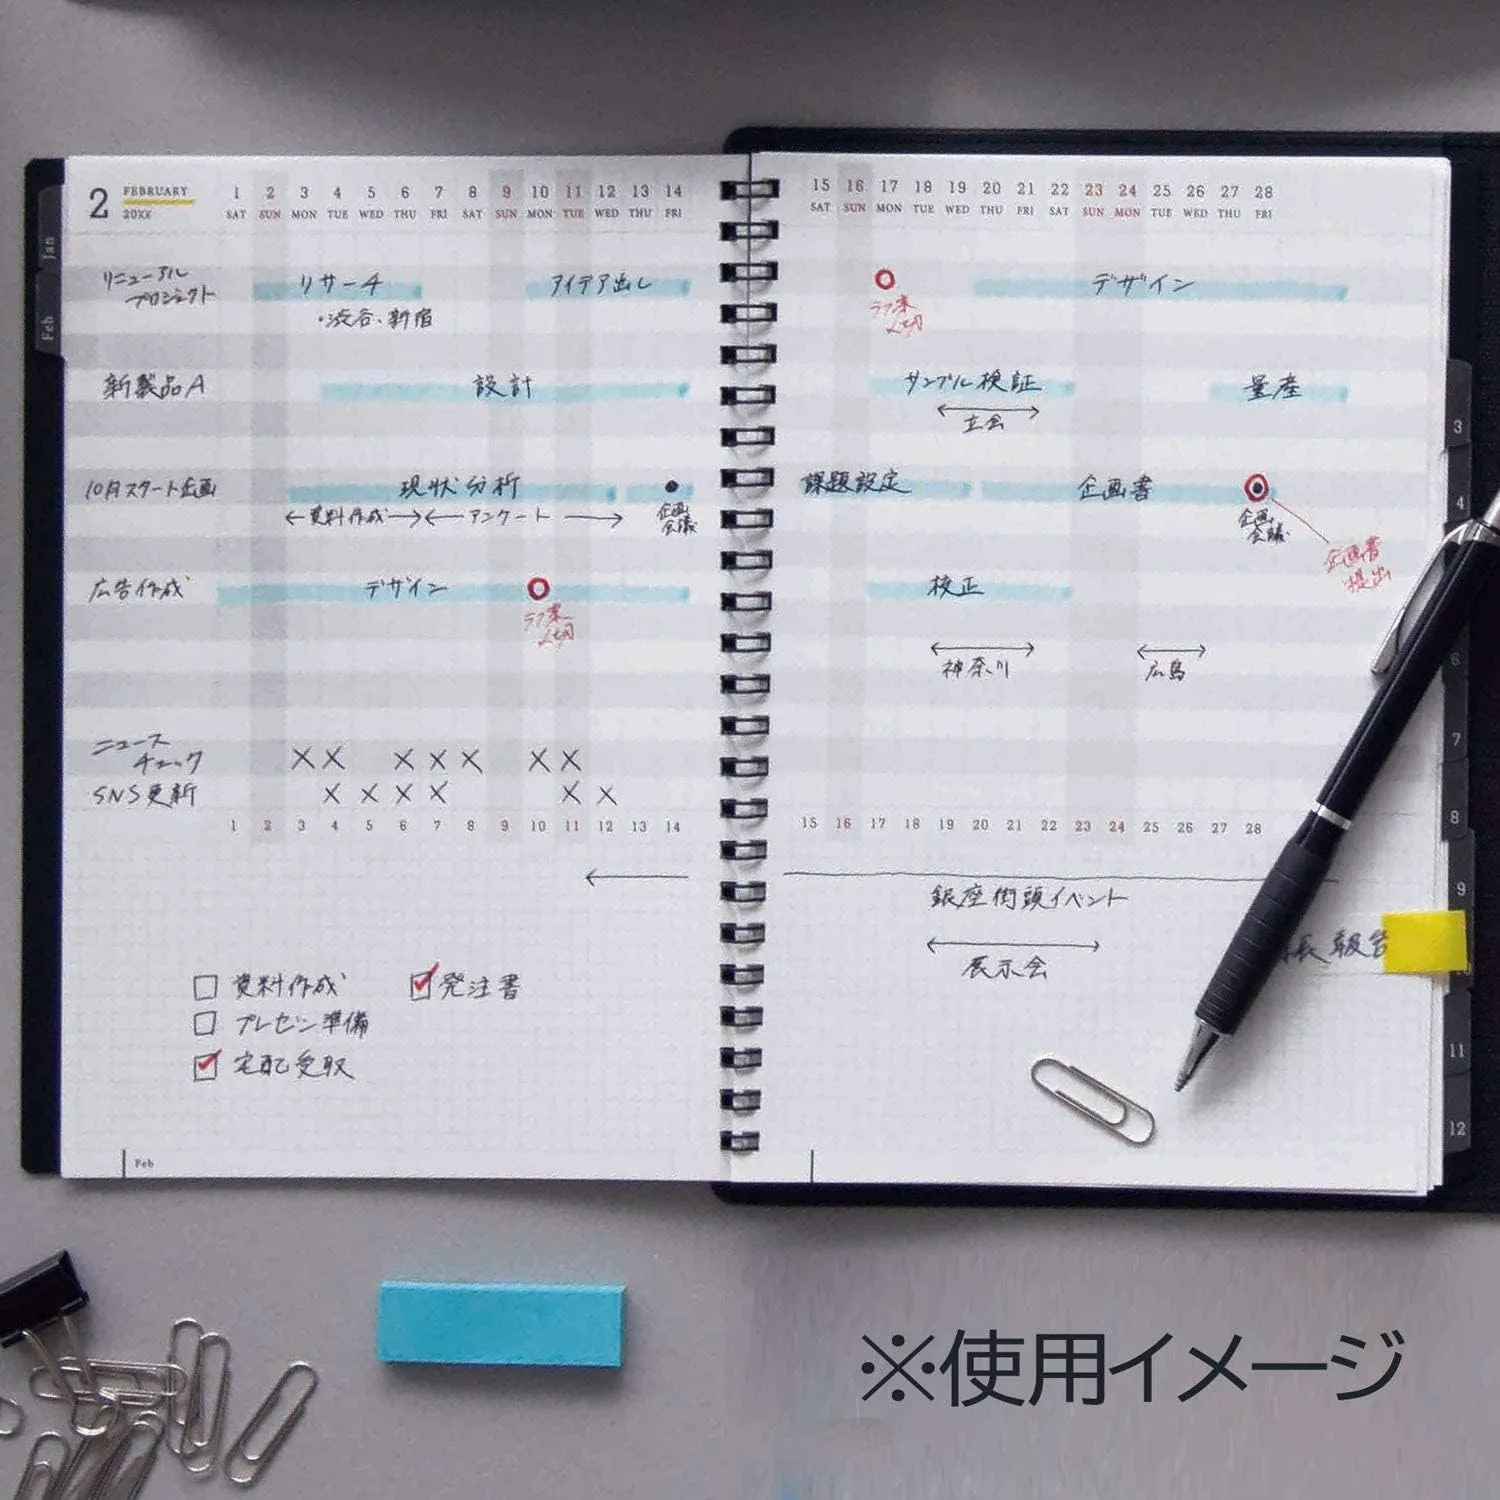 2 FEBRUARY 20XX
1 2 3 4 5 6 7 8 9 10 11 12 13 14
SAT SUN MON TUE WED THU FRI SAT SUN MON TUE WED THU FRI
15 16 17 18 19 20 21 22 23 24 25 26 27 28
SAT SUN MON TUE WED THU FRI SAT SUN MON TUE WED THU FRI
Jan
Feb
リニューアル
プロジェクト
リサーチ
・渋谷、新宿
アイデア出し
ラフ案
〆切
デザイン
新製品A
設計
サンプル検証
立会
量産
10月スタート企画
現状分析
資料作成
アンケート
企画
会議
課題設定
企画書
企画
会議
企画書
提出
広告作成
デザイン
ラフ案
〆切
校正
神奈川
広島
ニュース
チェック
× × × × × × ×
SNS更新
× × × × × ×
1 2 3 4 5 6 7 8 9 10 11 12 13 14
15 16 17 18 19 20 21 22 23 24 25 26 27 28
銀座街頭イベント
展示会
長 報告
資料作成
発注書
プレゼン準備
宅配受取
Feb
3
4
6
7
8
9
11
12
※使用イメージ